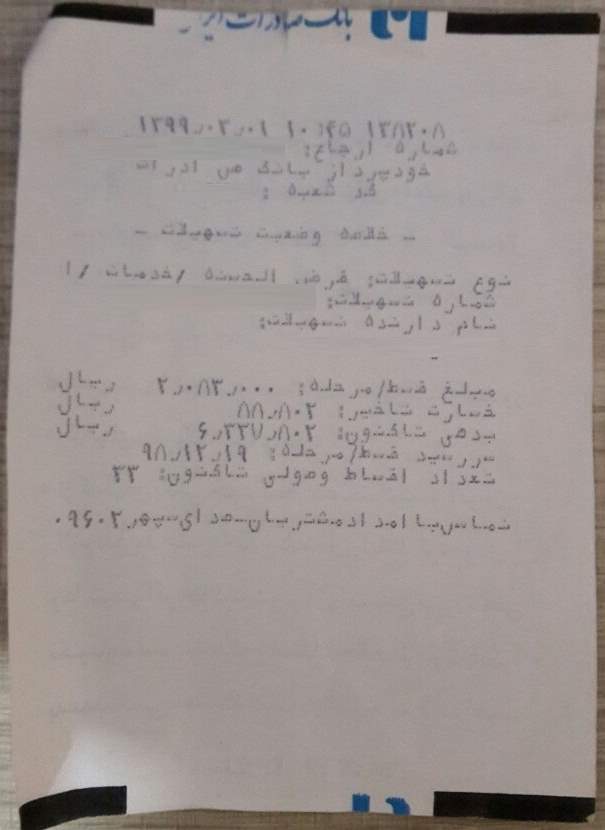 بانک صادرات ایران
۱۳۹۹٫۰۳٫۰۱ ۱۰:۴۵ ۱۳۸۲۰۸
شماره ارجاع:
خودپرداز بانک ص ادرات
کد شعبه :
- خلاصه وضعیت تسهیلات -
نوع تسهیلات: قرض الحسنه /خدمات /ا
شماره تسهیلات:
نام دارنده تسهیلات:
-
مبلغ قسط/مرحله: ۲٫۰۸۳٫۰۰۰ ریال
خسارت تاخیر: ۸۸٫۸۰۲ ریال
بدهی تاکنون: ۶٫۳۳۷٫۸۰۲ ریال
سررسید قسط/مرحله: ۹۸٫۱۲٫۱۹
تعداد اقساط وصولی تاکنون: ۳۳
تماس با امداد مشتریان-صدای سپهر ۰۹۶۰۲